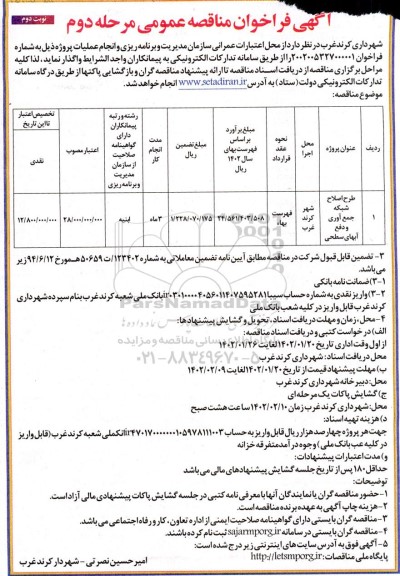 آگهی فراخوان مناقصه عمومی مرحله دوم
نوبت دوم
شهرداری کرندغرب در نظر دارد از محل اعتبارات عمرانی سازمان مدیریت و برنامه ریزی و انجام عملیات پروژه ذیل به شماره
فراخوان ۲۰۰۲۰۰۵۳۲۷۰۰۰۰۰۱ را از طریق سامانه تدارکات الکترونیکی به پیمانکاران واجد الشرایط واگذار نماید، لذا کلیه
مراحل برگزاری مناقصه از دریافت اسناد مناقصه تا ارائه پیشنهاد مناقصه گران و بازگشایی پاکتها از طریق درگاه سامانه
تدارکات الکترونیکی دولت (ستاد) به آدرس www.setadiran.ir انجام خواهد شد.
موضوع مناقصه:
ردیف | عنوان پروژه | محل اجرا | نحوه قرارداد | مبلغ برآورد بر اساس فهرست بهای سال ۱۴۰۲ ریال | مبلغ تضمین ریال | مدت انجام کار | رشته و رتبه پیمانکاران دارای گواهینامه صلاحیت از سازمان مدیریت و برنامه ریزی | اعتبار مصوب | تخصیص اعتبار تا این تاریخ نقدی
۱ | طرح اصلاح شبکه جمع آوری و دفع آبهای سطحی | شهر کرند غرب | فهرست بهاء | ۲۴/۵۶۱/۴۰۳/۵۰۸ | ۱/۲۲۸/۰۷۰/۱۷۵ | ۳ ماه | ابنیه | ۲۸/۰۰۰/۰۰۰/۰۰۰ | ۱۲/۸۰۰/۰۰۰/۰۰۰
۳- تضمین قابل قبول شرکت در مناقصه مطابق آیین نامه تضمین معاملاتی به شماره ۱۲۳۴۰۲/ت ۵۰۶۵۹ هـ مورخ ۹۴/۶/۱۲ زیر
می باشد.
۳-۱) ضمانت نامه بانکی
۳-۲) واریز نقدی به شماره حساب سیبا بانک ملی شعبه کرند غرب بنام سپرده شهرداری
کرند غرب قابل واریز در کلیه شعب بانک ملی
۴- محل، زمان و مهلت دریافت اسناد، تحویل و گشایش پیشنهادها:
الف) درخواست کتبی و دریافت اسناد مناقصه:
از اول وقت اداری تاریخ ۱۴۰۲/۰۱/۲۰ لغایت ۱۴۰۲/۰۱/۲۶
محل دریافت اسناد: شهرداری کرند غرب
ب) مهلت پیشنهاد قیمت از تاریخ ۱۴۰۲/۰۱/۲۰ لغایت ۱۴۰۲/۰۲/۰۹
محل: دبیرخانه شهرداری کرند غرب
ج) گشایش پاکات یک مرحله ای
محل: شهرداری کرند غرب زمان ۱۴۰۲/۰۲/۱۰ ساعت هشت صبح
د) هزینه تهیه اسناد:
جهت هر پروژه چهارصد هزار ریال قابل واریز به حساب بانک ملی شعبه کرند غرب (قابل واریز
در کلیه شعب بانک ملی) وجوه درآمد متفرقه خزانه
و) مدت اعتبارات پیشنهادات:
حداقل ۱۸۰ پس از تاریخ جلسه گشایش پیشنهادهای مالی می باشد
توضیحات:
۱- حضور مناقصه گران یا نمایندگان آنها با معرفی نامه کتبی در جلسه گشایش پاکات پیشنهادی مالی آزاد است.
۲- هزینه چاپ آگهی به عهده برنده مناقصه است.
۳- مناقصه گران بایستی دارای گواهینامه صلاحیت ایمنی از اداره تعاون، کار و رفاه اجتماعی می باشد.
۴- مناقصه گران بایستی در سامانه sajarmporg.ir ثبت نام کرده باشند.
۵- آگهی فوق به آدرس سایت های اینترنتی زیر درج شده است:
پایگاه ملی مناقصات: http://letsmporg.ir
امیرحسین نصرتی - شهردار کرند غرب
ParsNamadData
۰۲۱-۸۸۳۴۹۶۷۰-۵